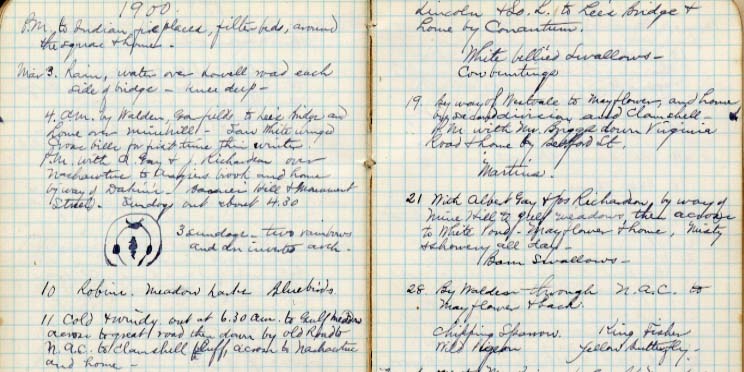 1900.
P.M. to Indian fireplaces, filter beds, around
the square & home.
Mar 3. Rain, water over Lowell road each
side of bridge - knee deep -
4. A.M. by Walden, Garfields to Lee's bridge and
home over minehill - Saw White winged
cross bills for first time this winter
P.M. with A. Gay & J. Richardson over
Nashawtuc to Angiers brook and home
by way of Dakins - Barrier Hill & Monument
Street. Sundogs out about 4.30
3 sundogs - two rainbows
and an inverted arch.
10 Robins. Meadow larks Bluebirds
11 Cold & windy out at 6.30 A.M. to Gulf meadow
across to great road then down by old Road to
N.A.C. to Clamshell bluff, across to Nashawtuc
and home -
Lincoln & So. L. to Lee's Bridge &
home by Conantum.
White bellied Swallows -
Cowbuntings
19. By way of Westvale to Mayflower, and home
by second division and Clamshell -
P.M. with Mr. Briggs down Virginia
Road & home by Bedford St.
"Martins.
21 With Albert Gay & Jos Richardson, by way of
Mine Hill to Gulf meadows, then across
to White Pond - Mayflower & home, Misty
& showery all day -
Barn Swallows -
28. By Walden through N.A.C. to
Mayflower & back.
Chipping Sparrow. King Fisher
Wild Pigeon Yellow butterfly -